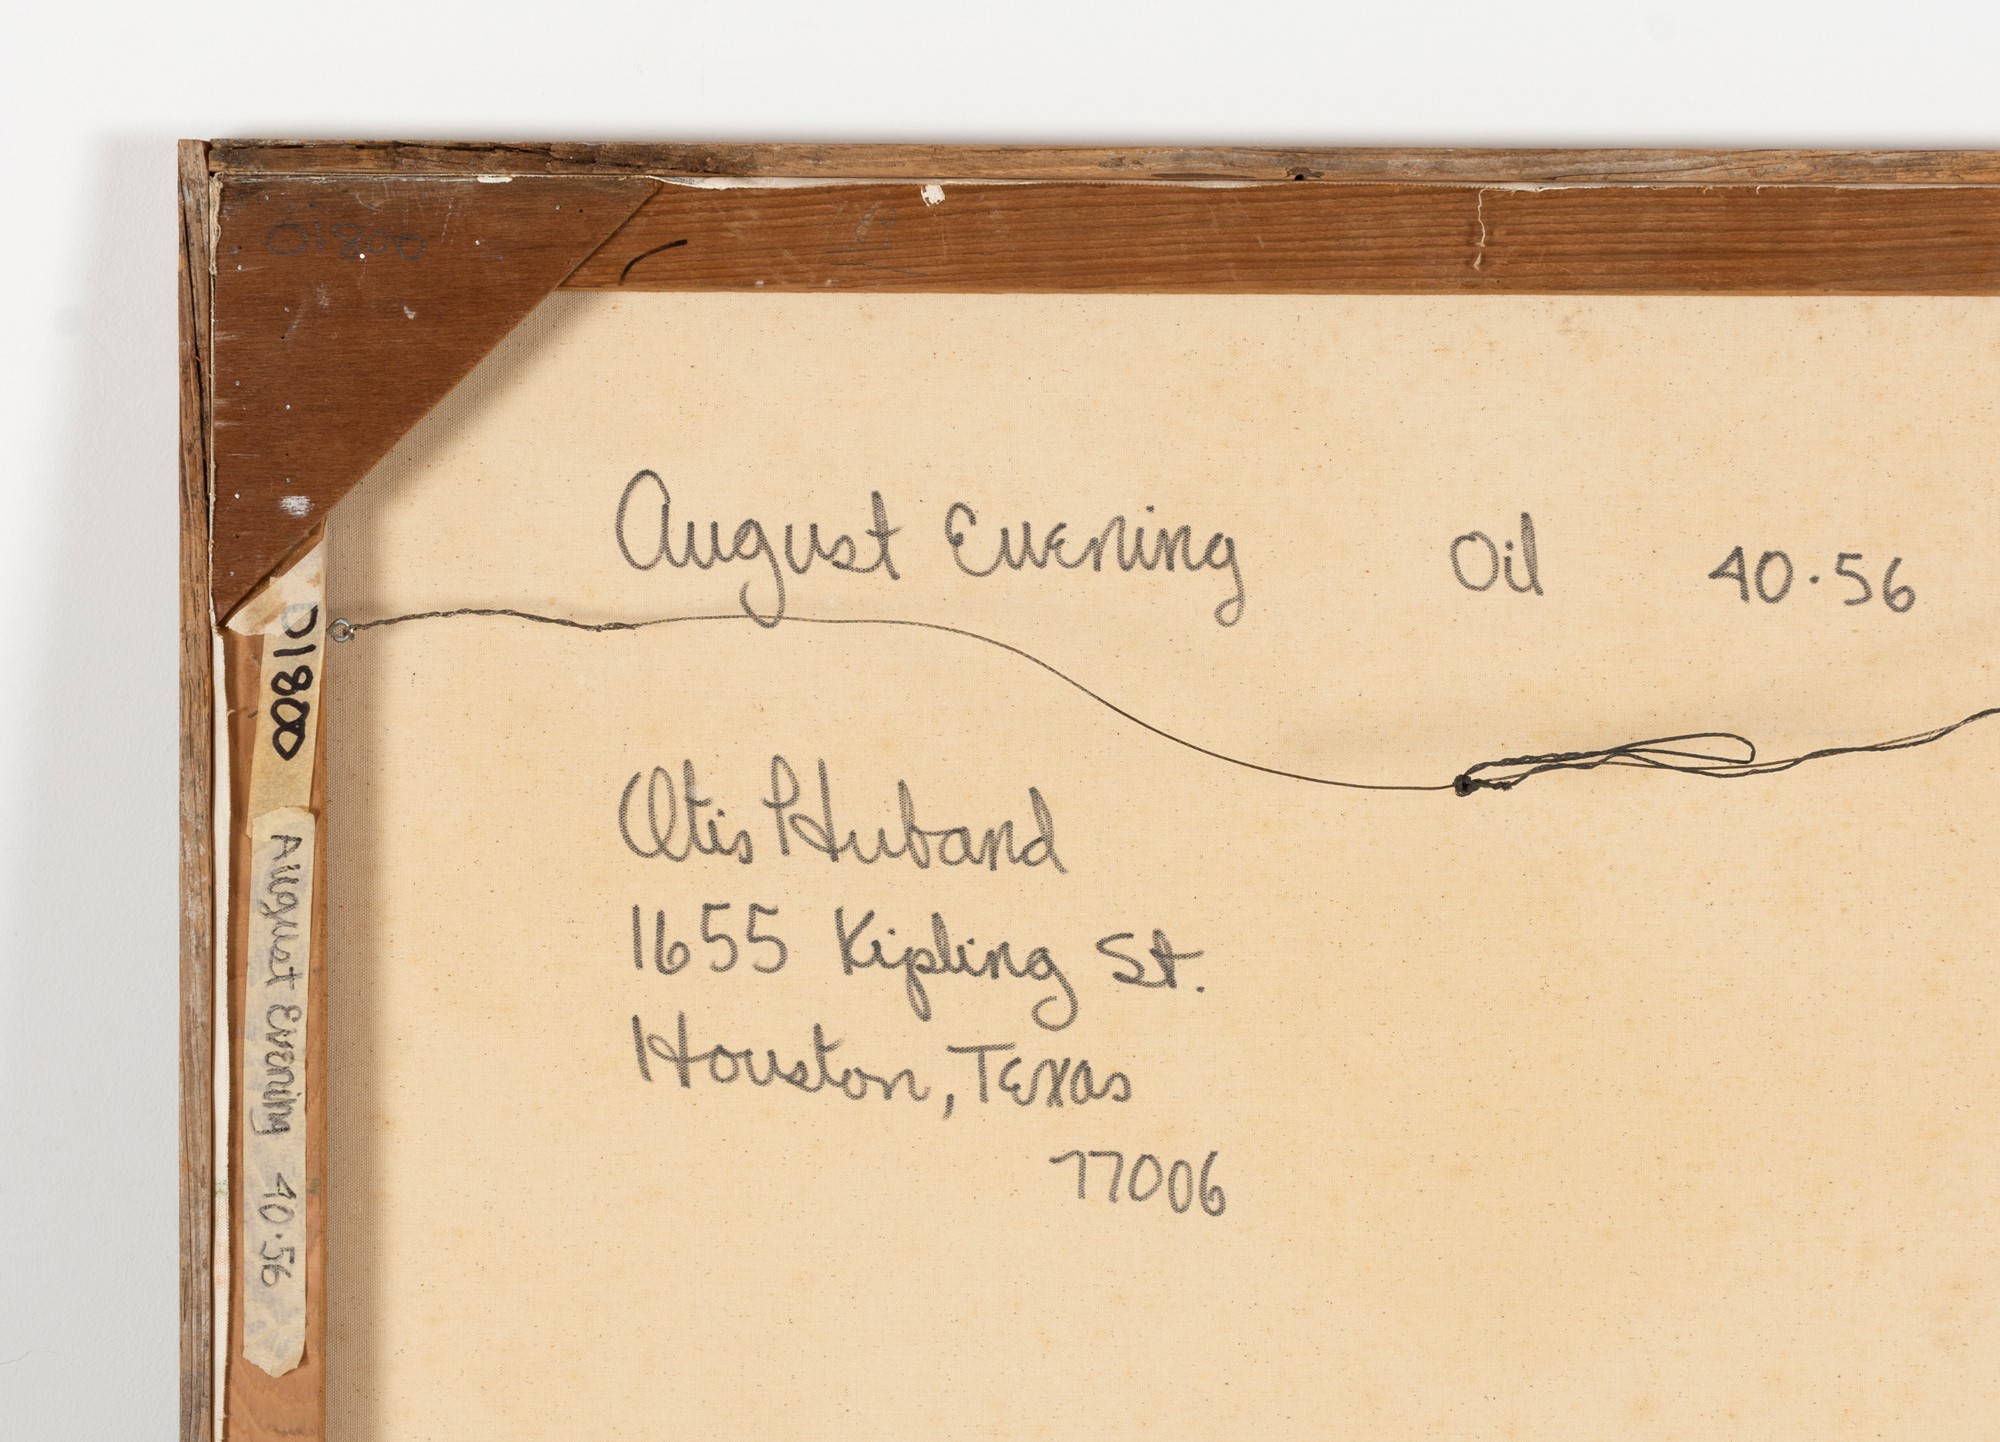 01800
August Evening Oil 40·56
01800
Otis Huband
1655 Kipling St.
Houston, Texas
77006
August Evening 40·56